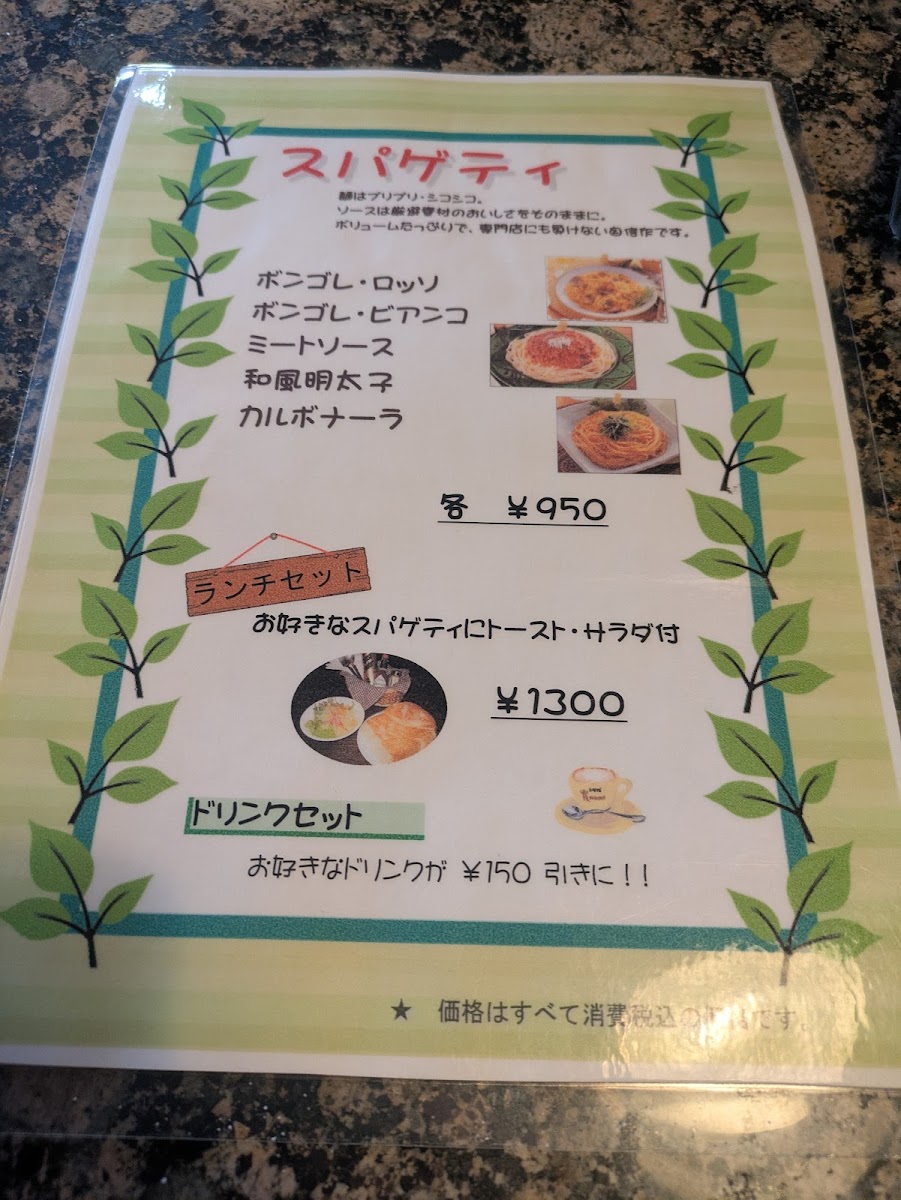 スパゲティ
麺はプリプリ・シコシコ。
ソースは厳選素材のおいしさをそのままに。
ボリュームたっぷりで、専門店にも負けない自信作です。
ボンゴレ・ロッソ
ボンゴレ・ビアンコ
ミートソース
和風明太子
カルボナーラ
各 ¥950
ランチセット
お好きなスパゲティにトースト・サラダ付
¥1300
ドリンクセット
お好きなドリンクが ¥150 引きに！！
★ 価格はすべて消費税込の です。